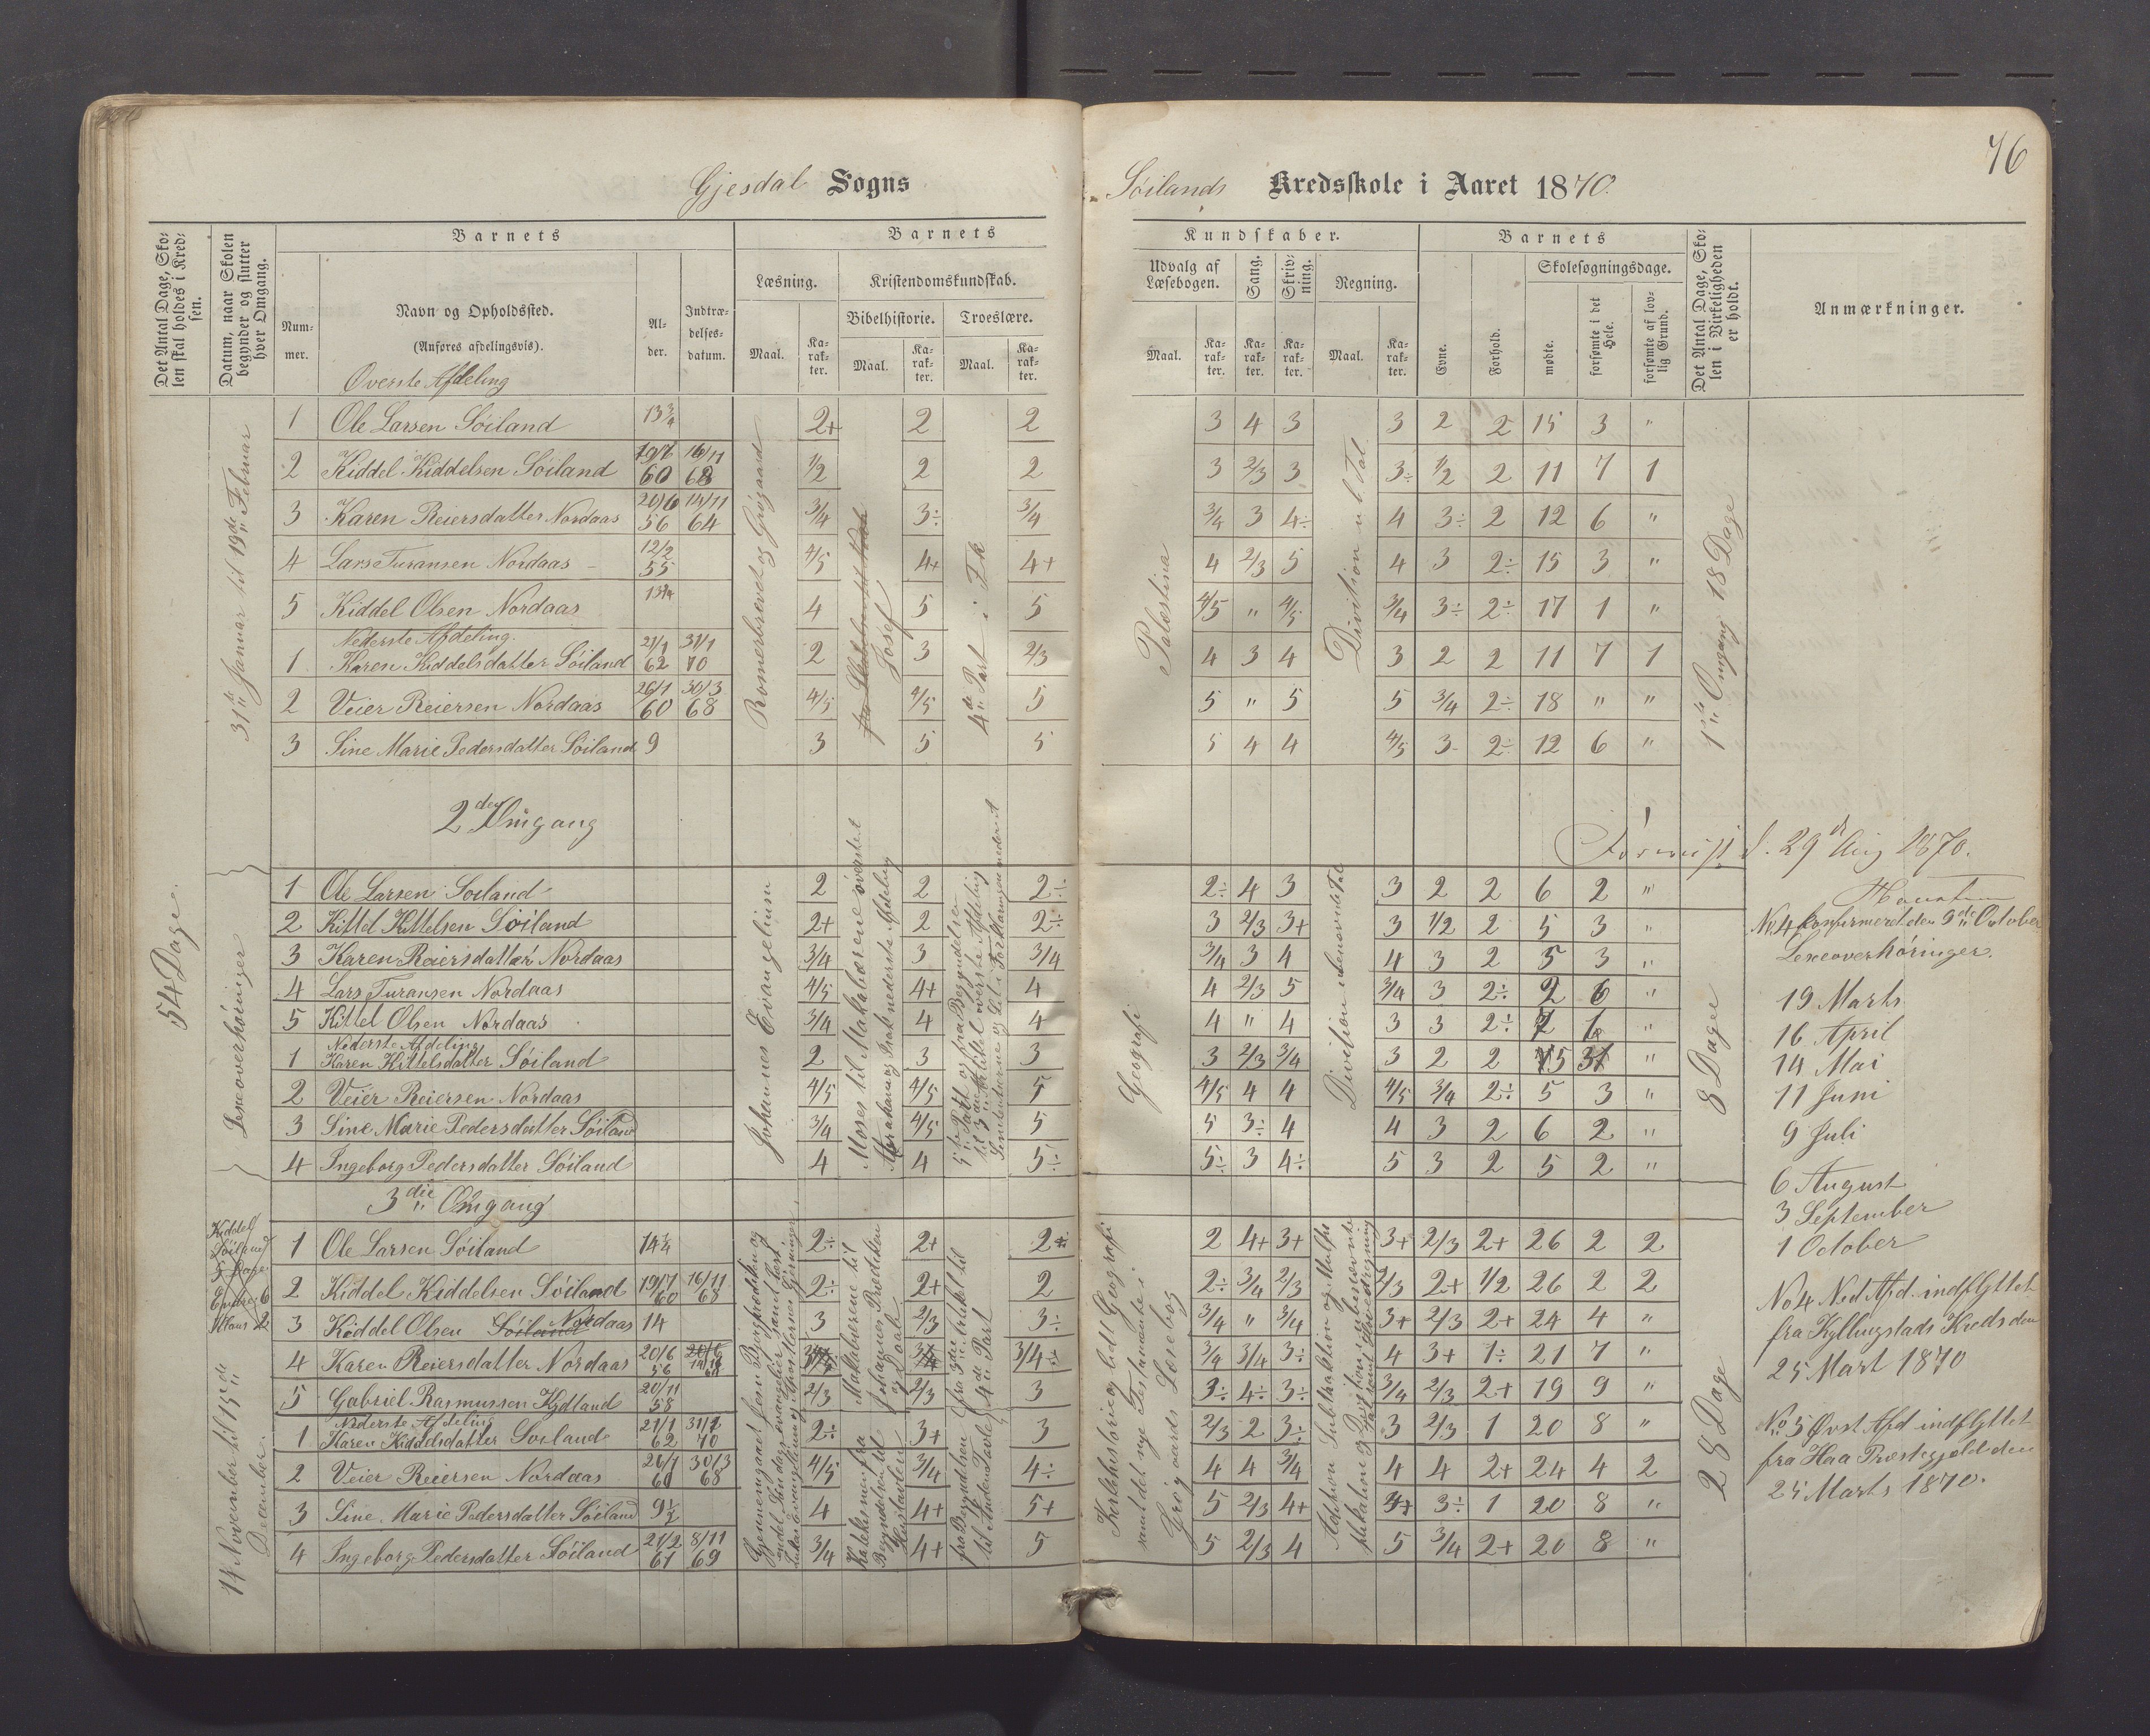 76
Gjesdal Sogns
Søilands Kredsskole i Aaret 1870.
Det Antal Dage, Skolen skal holdes i Kredsen.
Datum, naar Skolen begynder og slutter hver Omgang.
Barnets
Nummer.
Navn og Opholdssted.
(Anføres afdelingsvis).
Alder.
Indtrædelsesdatum.
Barnets
Læsning.
Kristendomskundskab.
Bibelhistorie.
Troeslære.
Maal.
Karakter.
Maal.
Karakter.
Maal.
Karakter.
Kundskaber.
Udvalg af Læsebogen.
Sang.
Skrivning.
Regning.
Maal.
Karakter.
Karakter.
Karakter.
Maal.
Karakter.
Barnets
Evne.
Forhold.
Skolesøgningsdage.
mødte.
forsømte i det Hele.
forsømte af lovlig Grund.
Det Antal Dage, Skolen i Virkeligheden er holdt.
Anmærkninger.
54 Dage.
31te Januar til 19de Februar
Romerbrevet og Grøgaard
Josef
4de Part i F.k
Palæstina
Division u b Tal
1ste Omgang 18 Dage
Øverste Afdeling
1 Ole Larsen Søiland 13 3/4 2+ 2 2 3 4 3 3 2 2 15 3 "
2 Kiddel Kiddelsen Søiland 19/7 60 16/11 68 1/2 2 2 3 2/3 3 3÷ 1/2 2 11 7 1
3 Karen Reiersdatter Nordaas 20/6 56 14/11 64 3/4 3÷ 3/4 3/4 3 4÷ 4 3÷ 2 12 6 "
4 Lars Turansen Nordaas 12/2 55 4/5 4+ 4+ 4 2/3 5 4 3 2÷ 15 3 "
5 Kiddel Olsen Nordaas 4 5 5 4/5 " 4/5 3/4 3÷ 2÷ 17 1 "
Nederste Afdeling.
1 Karen Kiddelsdatter Søiland 21/1 62 31/1 70 2 3 2/3 4 3 4 3 2 2 11 7 1
2 Veier Reiersen Nordaas 26/1 60 30/3 68 4/5 4/5 5 5 " 5 5 3/4 2÷ 18 " "
3 Sine Marie Pedersdatter Søiland 9 3 5 5 5 4 4 4/5 3- 2÷ 12 6 "
2den Omgang
d. 29de Aug 1870.
Lexeoverhøringer
Johannes Evangelium
Moses til Makabæerne øverste
Abraham og Isak nederste Afdeling
Geografi
Division ubenævnte Tal
8 Dage
1 Ole Larsen Søiland 2 2 2÷ 2÷ 4 3 3 2 2 6 2 "
2 Kittel Kittelsen Søiland 2+ 2 2÷ 3 2/3 3+ 3 1/2 2 5 3 "
3 Karen Reiersdatter Nordaas 3/4 3 3/4 3/4 3 4 4 3 2 5 3 "
4 Lars Turansen Nordaas 4/5 4+ 4 4 2/3 5 3/4 3 2÷ 2 6 "
5 Kittel Olsen Nordaas 3/4 4 4 4 " 4 3 3 2÷ "
Nederste Afdeling
1 Karen Kittelsdatter Søiland 2 3 3 3 2/3 3/4 3 2 2 5 3 "
2 Veier Reiersen Nordaas 4/5 4/5 5 4/5 4 4 4/5 3/4 2÷ 5 3 "
3 Sine Marie Pedersdatter Søiland 3/4 4/5 5 5 3÷ 4 4 3 2 6 2 "
4 Ingeborg Pedersdatter Søiland 4 4 5÷ 5÷ 3 4÷ 5 3 2 5 2 "
No 4 konfirmeret den 9de October
Lexeoverhøringer.
19 Marts
16 April
14 Mai
11 Juni
9 Juli
6 August
3 September
1 October
3die Omgang
Kiddel
Søiland
5 Dage
14 November til 15de December.
Kirkehistorie og lidt Geografi
samt det nye Testamente i
Lærebog
28 Dage
1 Ole Larsen Søiland 14 1/4 2÷ 2+ 2 2 4+ 3+ 3+ 2/3 2+ 26 2 2
2 Kiddel Kiddelsen Søiland 19/7 60 16/11 68 2÷ 2+ 2 2÷ 3/4 2/3 2/3 2+ 1/2 26 2 2
3 Kiddel Olsen Søiland Nordaas 14 3 2/3 3÷ 3/4 " 3/4 3+ 2/3 2+ 24 4 "
4 Karen Reiersdatter Nordaas 20/6 56 3/4÷ 3/4 3/4 3÷ 4 3+ 1÷ 21 7 "
5 Gabriel Rasmussen Kydland 20/11 58 2/3 2/3 3 3÷ 4÷ 3÷ 3/4 2/3 2+ 19 9 "
Nederste Afdeling
1 Karen Kiddelsdatter Søiland 21/1 62 31/1 70 2÷ 3+ 3 2/3 2 3÷ 3 2/3 1 20 8 "
2 Veier Reiersen Nordaas 26/1 60 30/3 68 4/5 3/4 4÷ 4 4 3/4 4 4 2+ 24 4 2
3 Sine Marie Pedersdatter Søiland 9 1/2 4 4+ 5+ 5 2/3 4+ 3÷ 1 20 8 "
4 Ingeborg Pedersdatter Søiland 21/2 61 8/11 69 3/4 4+ 5 5 2/3 4 5 3/4 2+ 20 8 "
No 4 Ned Afd. indflyttet
fra Kyllingstads Kreds den
25 Mart 1870
No 5 Øvst Afd indflyttet
fra Haa Præstegjeld den
25 Marts 1870.